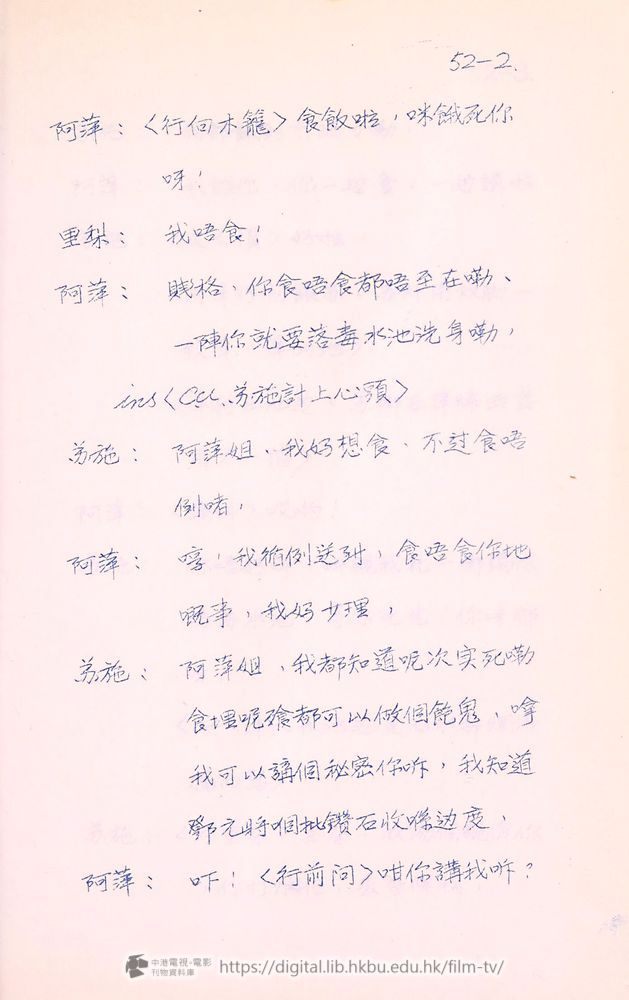 52-2.
阿萍：〈行向木籠〉食飯啦，咪餓死你
呀！
里梨： 我唔食！
阿萍： 賤格、你食唔食都唔至在嘞、
一陣你就要落毒水池洗身嘞，
ins〈CU、苏施計上心頭〉
苏施： 阿萍姐、我好想食、不过食唔
倒啫，
阿萍： 我循例送到，食唔食你地
嘅事，我好少理，
苏施： 阿萍姐、我都知道呢次实死嘞
食埋呢飱都可以做個飽鬼、嗱
我可以講個秘密你咋，我知道
鄧元將嗰批鑽石收喺边度，
阿萍： 吓！〈行前问〉咁你講我咋？
中港電視·電影
刊物資料庫
https://digital.lib.hkbu.edu.hk/film-tv/